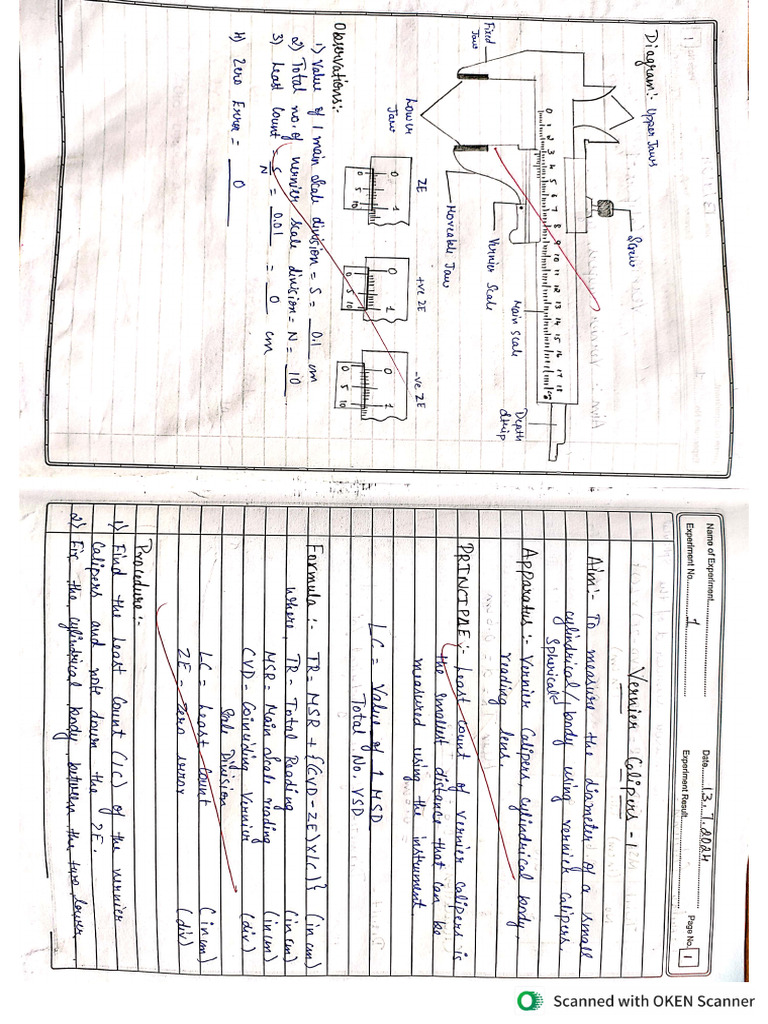 Diagram:-
Upper Jaws
Screw
Fixed
Jaw
0 1 2 3 4 5 6 7 8 9 10 11 12 13 14 15 16 17 18
Main scale
Depth
strip
Vernier Scale
Moveable Jaw
Lower
Jaw
ZE
+ve ZE
-ve ZE
0 1
0 5 10
0 1
0 5 10
0 1
0 5 10
Observations:-
1) Value of 1 main scale division = S = 0.1 cm
2) Total no. of vernier scale division = N = 10
3) Least Count = S/N = 0.01 = 0 cm
4) Zero Error = 0
Name of Experiment
Date 13.7.2024
Page No. 1
Experiment No. 1
Experiment Result
Vernier Calipers - 1
Aim:- To measure the diameter of a small
cylindrical/ body using vernick calipers.
Spherical
Apparatus:- Vernier Calipers, cylindrical body,
reading lens.
PRINCIPLE:- Least count of vernier calipers is
the smallest distance that can be
measured using the instrument.
LC = Value of 1 MSD
Total No. VSD
Formula:- TR = MSR + {(CVD - ZE) X LC)} (in cm)
where, TR = Total Reading (in cm)
MSR = Main Scale reading (in cm)
CVD = Coinciding Vernier (div)
Scale Division
LC = Least Count (in cm)
ZE = Zero error (div)
Procedure:-
1) Find the Least Count (LC) of the vernier
Calipers and note down the ZE.
2) Fix the cylindrical body between the two lower
Scanned with OKEN Scanner